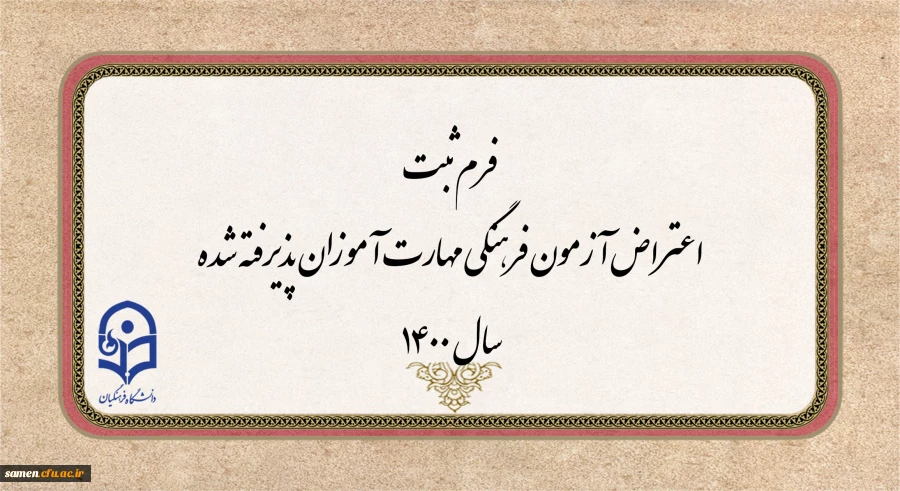 فرم ثبت
اعتراض آزمون فرهنگی مهارت آموزان پذیرفته شده
سال ۱۴۰۰
دانشگاه فرهنگیان
samen.cfu.ac.ir